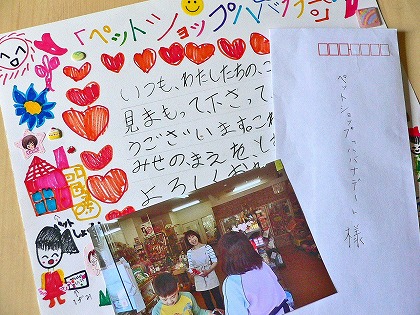 「ペットショップハバナデー」
いつも、わたしたちの、こ
見まもって下さって
うございます。これ
みせのまえを、と
よろしくおね
ペットショップ「ハバナデー」様